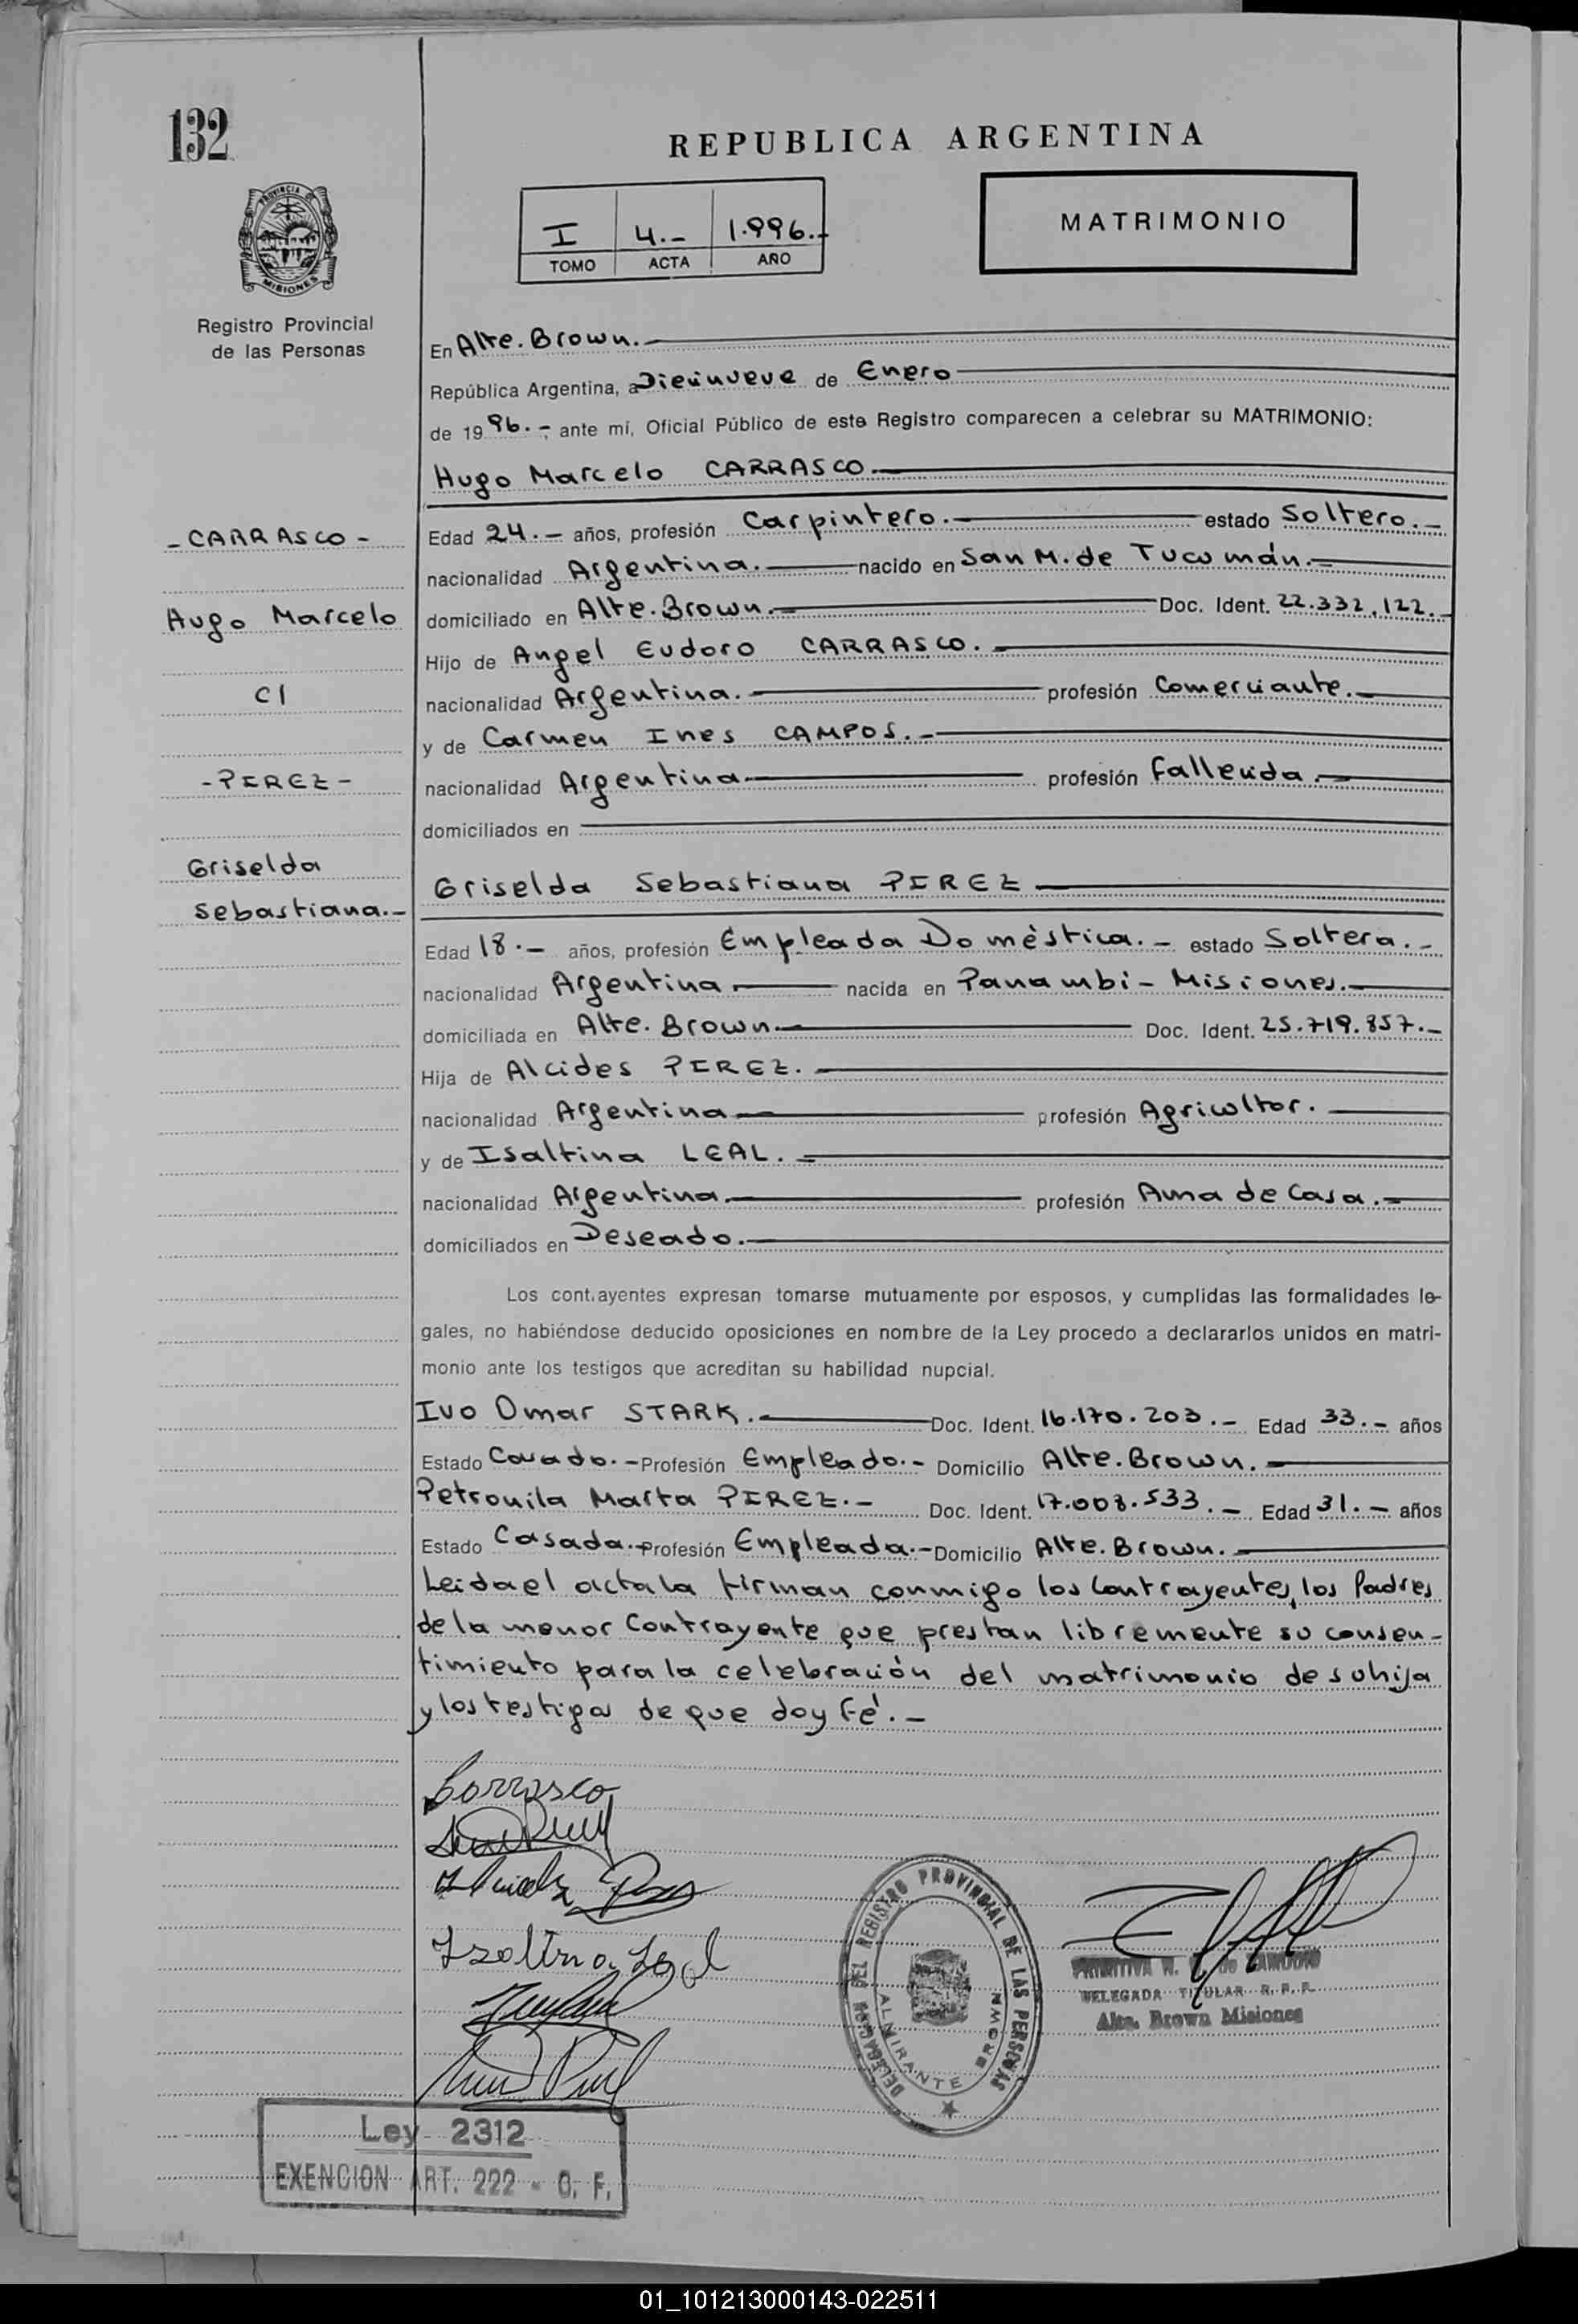 132
REPUBLICA ARGENTINA
PROVINCIA
MISIONES
I 4.- 1.996.-
TOMO ACTA AÑO
MATRIMONIO
Registro Provincial
de las Personas
En Alte. Brown.-
República Argentina, a Diecinueve de Enero
de 19 96.-, ante mí, Oficial Público de este Registro comparecen a celebrar su MATRIMONIO:
Hugo Marcelo CARRASCO.-
-CARRASCO-
Hugo Marcelo
C/
-PEREZ-
Griselda
Sebastiana.-
Edad 24.- años, profesión Carpintero.- estado Soltero.-
nacionalidad Argentina.- nacido en San M. de Tucumán.-
domiciliado en Alte. Brown.- Doc. Ident. 22.332.122.-
Hijo de Angel Eudoro CARRASCO.-
nacionalidad Argentina.- profesión Comerciante.-
y de Carmen Ines CAMPOS.-
nacionalidad Argentina- profesión Fallecida.-
domiciliados en
Griselda Sebastiana PEREZ
Edad 18.- años, profesión Empleada Doméstica.- estado Soltera.-
nacionalidad Argentina.- nacida en Panambí- Misiones.-
domiciliada en Alte. Brown.- Doc. Ident. 25.719.857.-
Hija de Alcides PEREZ.-
nacionalidad Argentina- profesión Agricultor.
y de Isaltina LEAL.-
nacionalidad Argentina.- profesión Ama de Casa.-
domiciliados en Deseado.-
Los contrayentes expresan tomarse mutuamente por esposos, y cumplidas las formalidades le-
gales, no habiéndose deducido oposiciones en nombre de la Ley procedo a declararlos unidos en matri-
monio ante los testigos que acreditan su habilidad nupcial.
Ivo Omar STARK.- Doc. Ident. 16.170.203.- Edad 33.- años
Estado Casado.- Profesión Empleado.- Domicilio Alte. Brown.-
Petronila Marta PEREZ.- Doc. Ident. 17.003.533.- Edad 31.- años
Estado Casada.- Profesión Empleada.- Domicilio Alte. Brown.-
Leida el acta la firman conmigo los Contrayentes, los Padres
de la menor Contrayente que prestan libremente su consen-
timiento para la celebración del matrimonio de su hija
y los testigos de que doy fé.-
Carrasco
Isoltina Leal
DELEGACION DEL REGISTRO PROVINCIAL DE LAS PERSONAS
ALMIRANTE BROWN
DELEGADA TITULAR R. P. P.
Alte. Brown Misiones
Ley 2312
EXENCION ART. 222 - C. F.
01_101213000143-022511